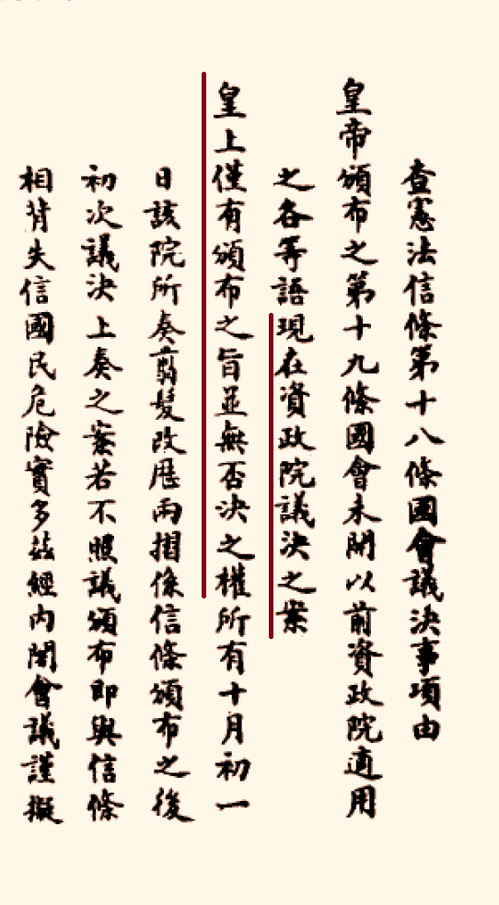 查憲法信條第十八條國會議決事項由
皇帝頒布之第十九條國會未開以前資政院適用
之各等語現在資政院議決之案
皇上僅有頒布之旨並無否決之權所有十月初一
日該院所奏翦髮改曆兩摺係信條頒布之後
初次議決上奏之案若不照議頒布即與信條
相背失信國民危險實多茲經內閣會議謹擬